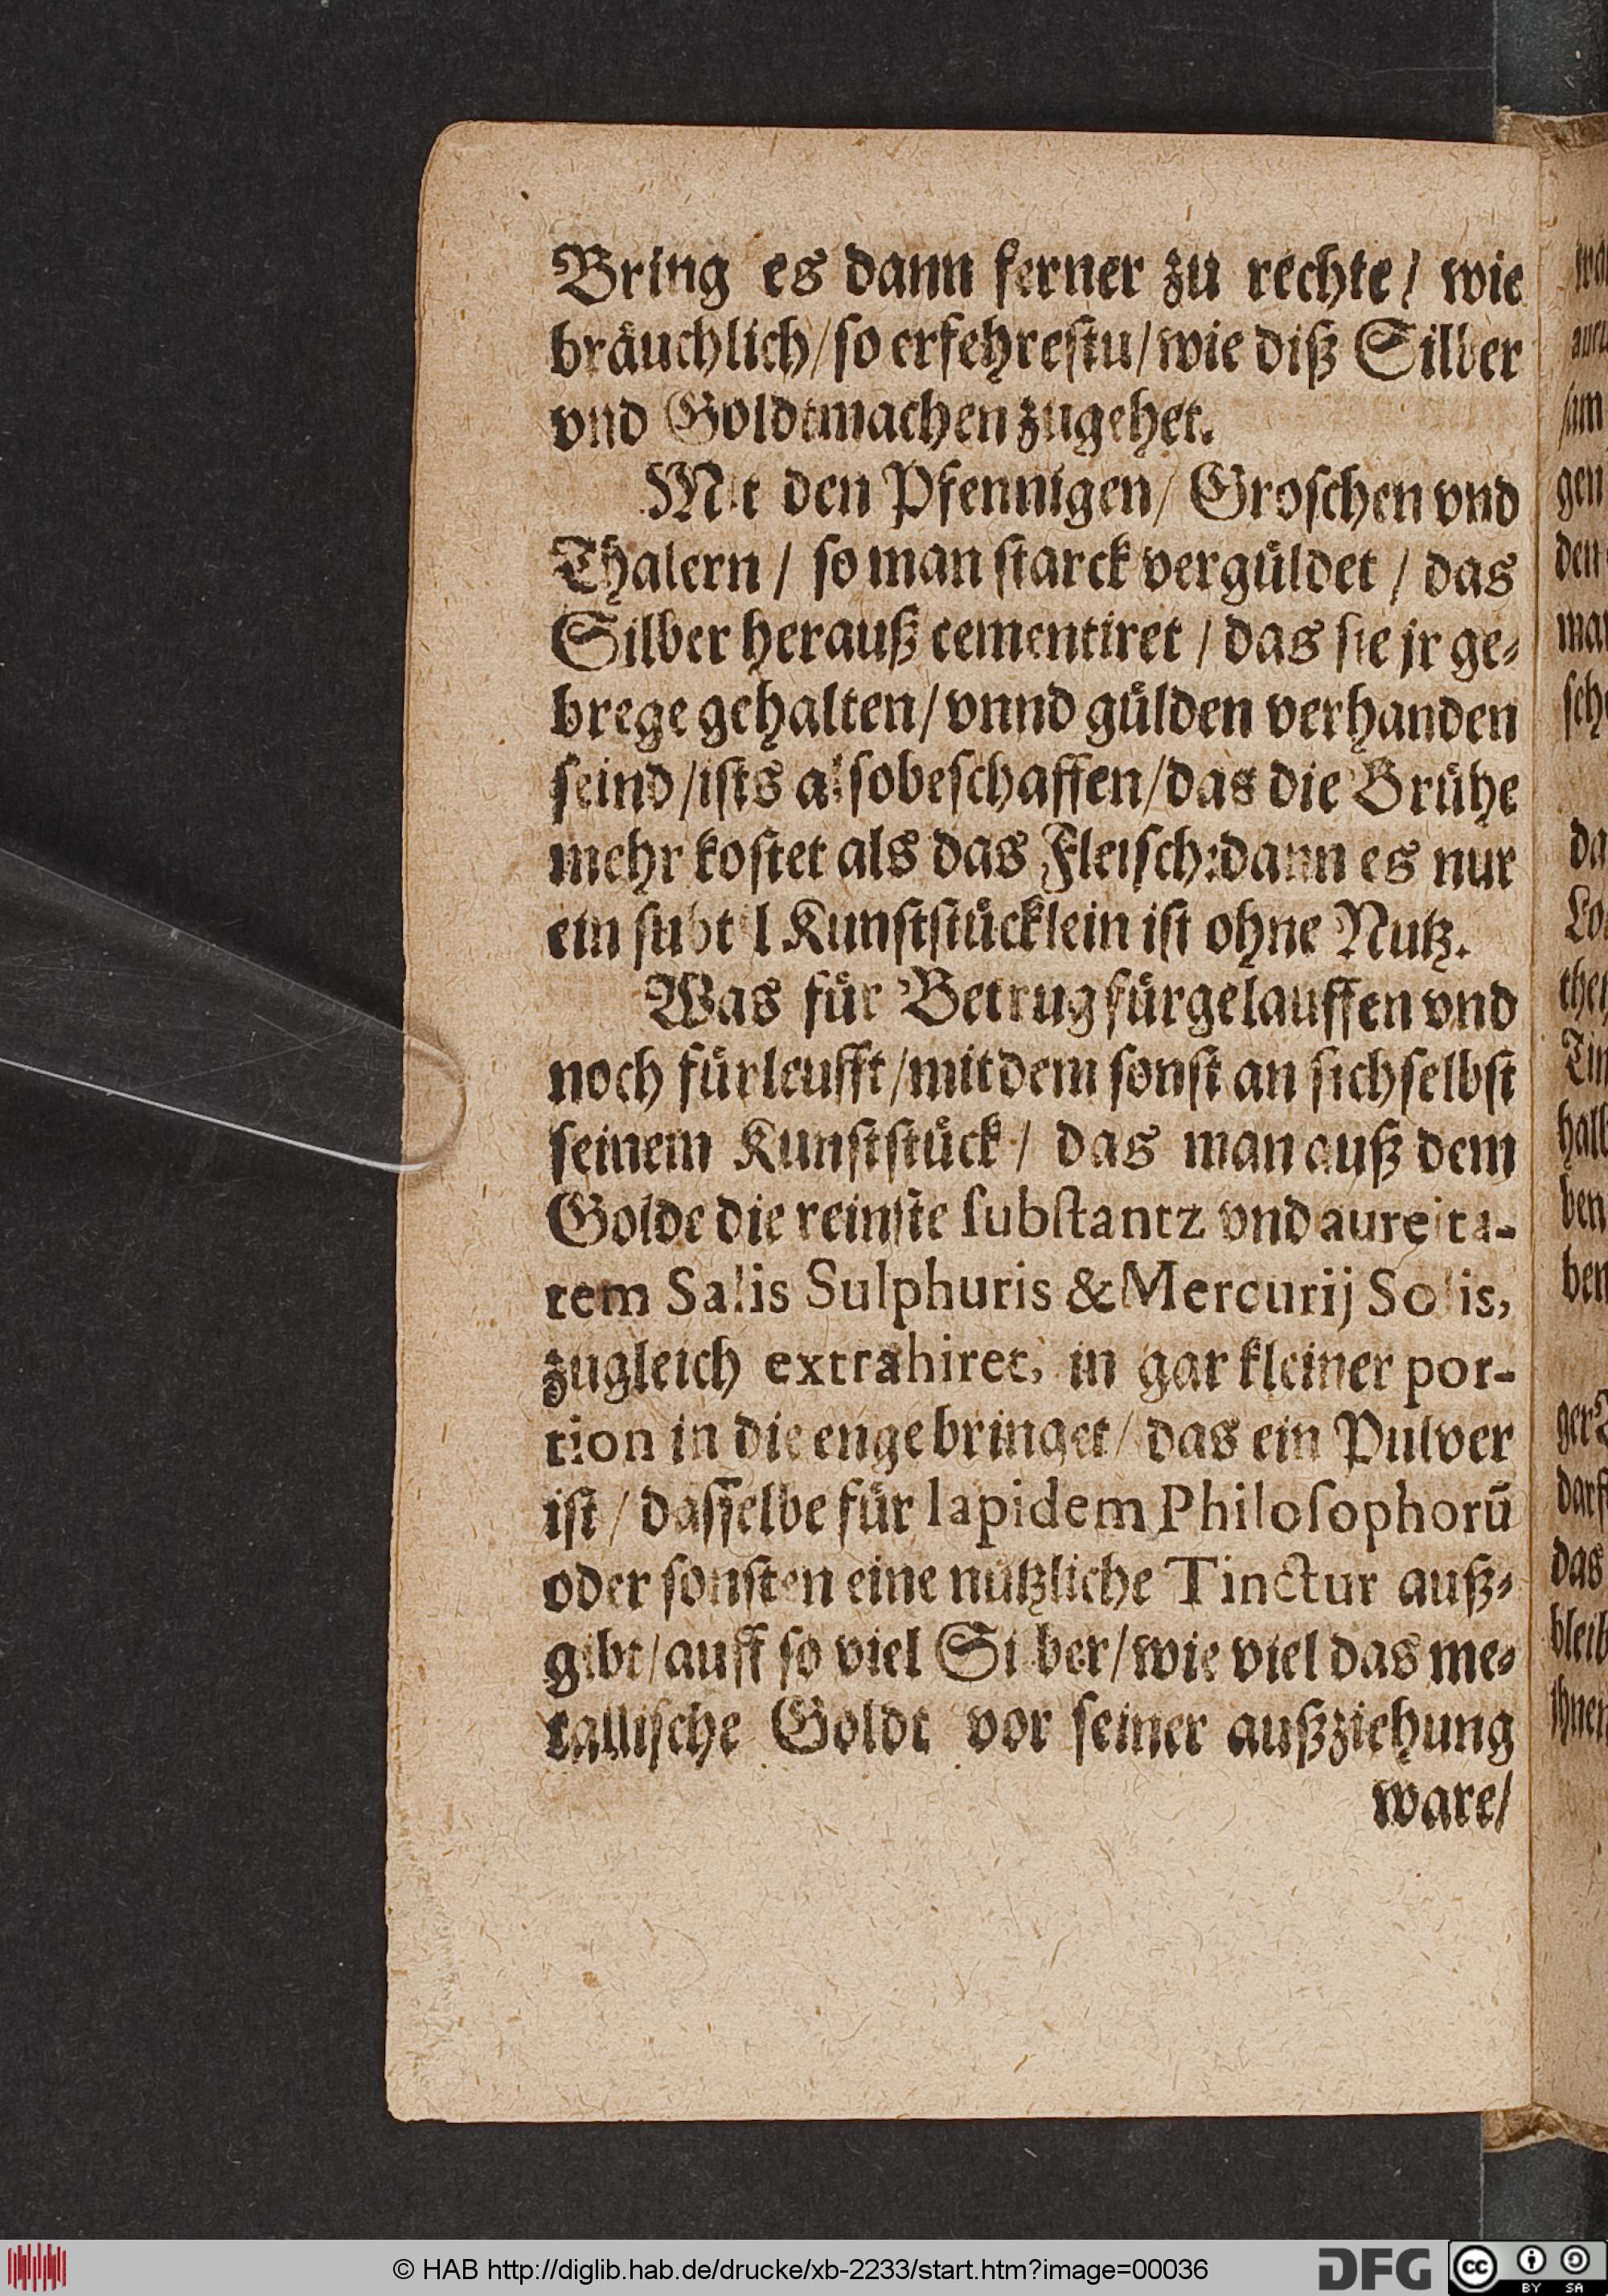 Bring es dann ferner zu rechte / wie
bräuchlich / so erfehrestu / wie diß Silber
vnd Goldtmachen zugehet.
Mit den Pfennigen / Groschen vnd
Thalern / so man starck vergüldet / das
Silber herauß cementiret / das sie jr ge-
brege gehalten / vnnd gülden verhanden
seind / ists also beschaffen / das die Brühe
mehr kostet als das Fleisch: dann es nur
ein subtil Kunststücklein ist ohne Nutz.
Was für Betrug fürgelauffen vnd
noch fürleufft / mit dem sonst an sich selbst
seinem Kunststück / das man auß dem
Golde die reinste substantz vnd aureita-
tem Salis Sulphuris & Mercurij Solis,
zugleich extrahiret, in gar kleiner por-
tion in die enge bringet / das ein Pulver
ist / dasselbe für lapidem Philosophorū
oder sonsten eine nützliche Tinctur auß-
gibt / auff so viel Silber / wie viel das me-
tallische Goldt vor seiner außziehung
ware /
gen
den
ben
das
© HAB http://diglib.hab.de/drucke/xb-2233/start.htm?image=00036
DFG
cc BY SA